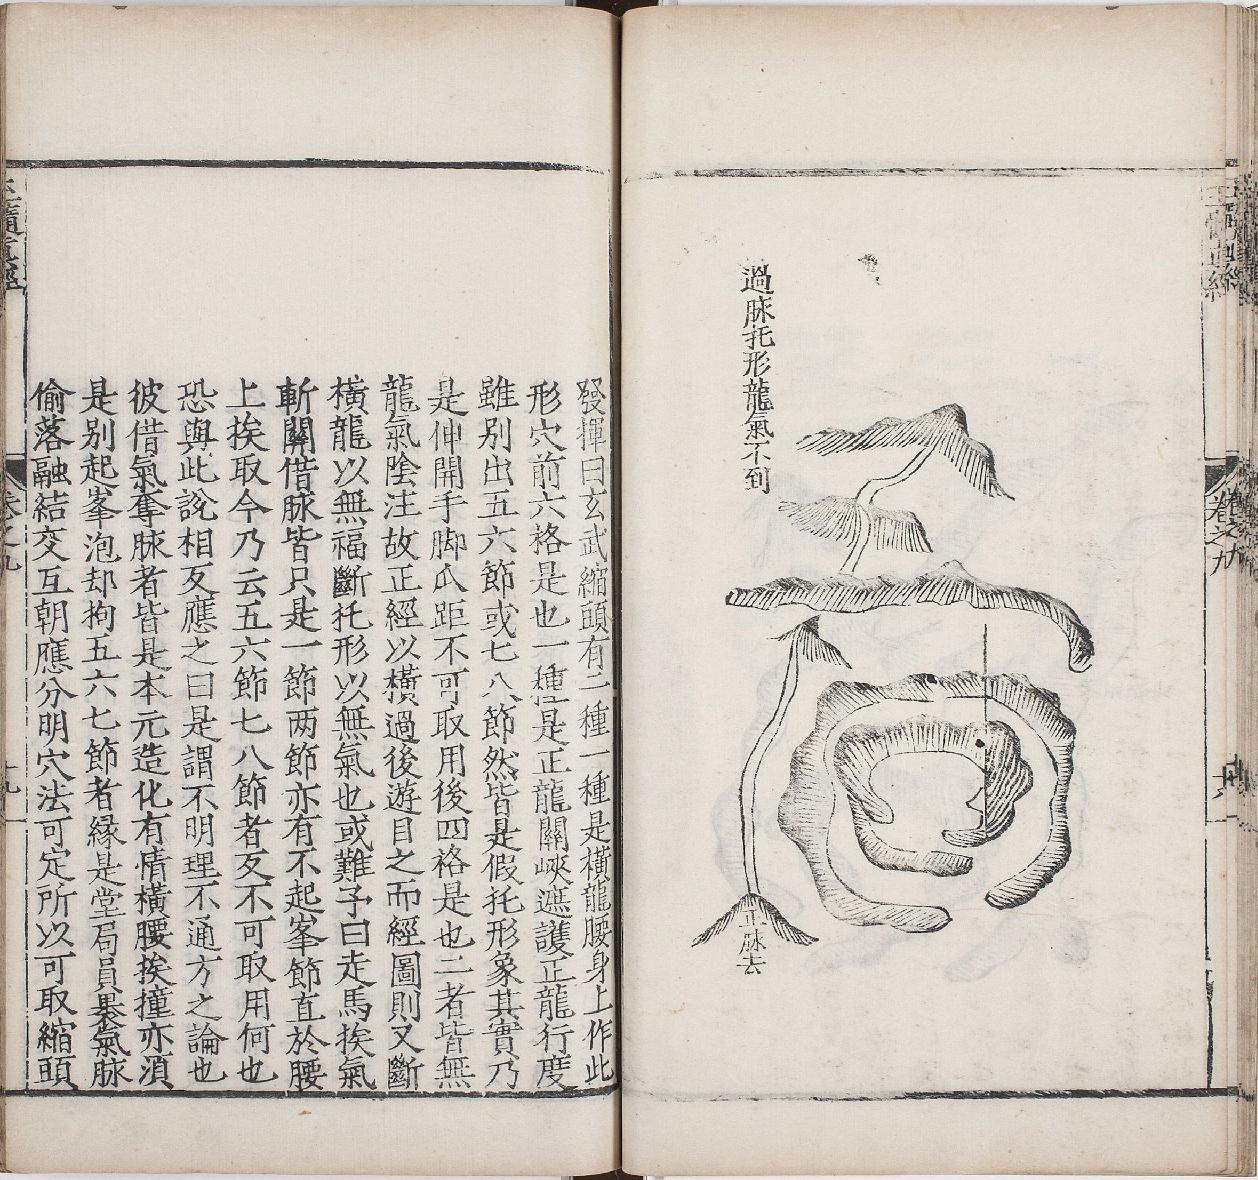 過脉托形龍氣不到
正脉去
卷之九
發揮曰玄武縮頭有二種一種是橫龍腰身上作此
形穴前六格是也一種是正龍關峽遮護正龍行度
雖别出五六節或七八節然皆是假托形象其實乃
是伸開手脚爪距不可取用後四格是也二者皆無
龍氣陰注故正經以橫過後遊目之而經圖則又斷
橫龍以無福斷托形以無氣也或難予曰走馬挨氣
斬關借脉皆只是一節两節亦有不起峯節直於腰
上挨取今乃云五六節七八節者亥不可取用何也
恐與此說相反應之曰是謂不明理不通方之論也
彼借氣奪脉者皆是本元造化有情橫腰挨撞亦湏
是别起峯泡却拘五六七節者縁是堂局員暴氣脉
偷落融結交互朝應分明穴法可定所以可取縮頭
玉髓真經
卷之九
十九